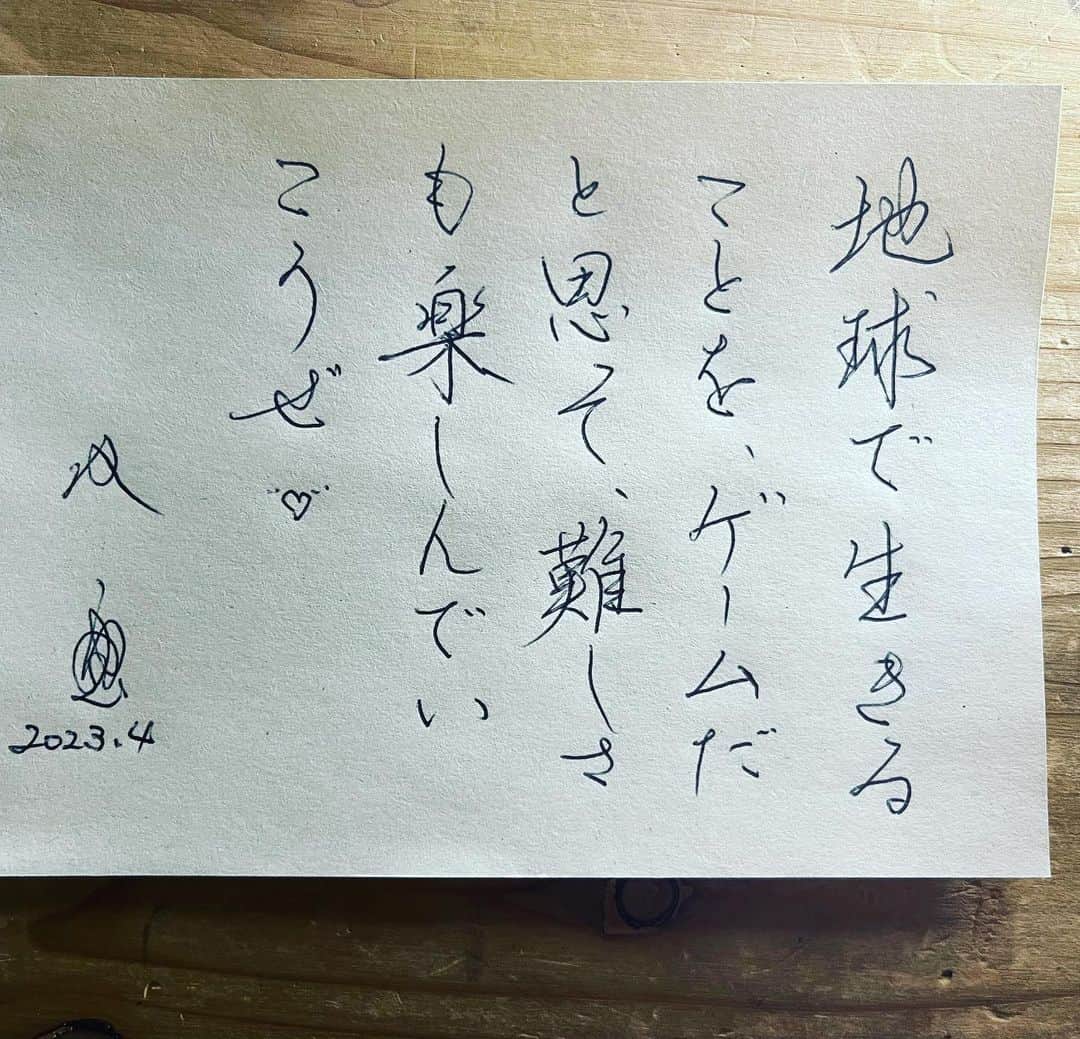 地球で生きる
ことを、ゲームだ
と思って、難しさ
も楽しんでい
こうぜ♡
2023.4